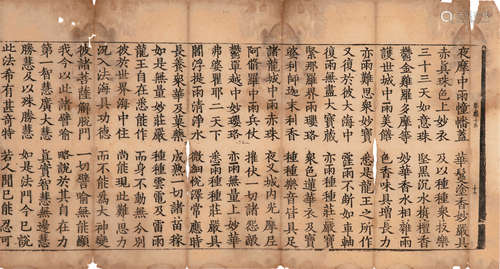 夜摩中雨幢幡蓋　華鬘塗香妙嚴具
赤真珠色上妙衣　及以種種衆妓樂
三十三天如意珠　堅黑沉水栴檀香
鬱金雞羅多摩等　妙華香水相雜雨
護世城中雨美饍　色香味具增長力
亦雨難思衆妙寶　悉是龍王之所作
又復於彼大海中　霔雨不斷如車軸
復雨無盡大寶藏　亦雨種種莊嚴寶
緊那羅界雨瓔珞　衆色蓮華衣及寶
婆利師迦末利香　種種樂音皆具足
諸龍城中雨赤珠　夜叉城內光摩尼
阿脩羅中雨兵仗　摧伏一切諸怨敵
鬱單越中妙瓔珞　亦雨無量上妙華
弗婆瞿耶二天下　悉雨種種莊嚴具
閻浮提雨清淨水　微細悅澤常應時
長養衆華及果藥　成熟一切諸苗稼
如是無量妙莊嚴　種種雲電及雷雨
龍王自在悉能作　而身不動無分別
彼於世界海中住　尚能現此難思力
況入法海具功德　而不能爲大神變
彼諸菩薩解脫門　一切譬喻無能顯
我今以此諸譬喻　略說於其自在力
第一智慧廣大慧　真實智慧無邊慧
勝慧及以殊勝慧　如是法門今已說
此法希有甚奇特　若人聞已能忍可